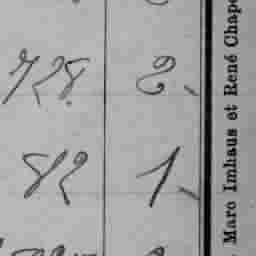 728. 2.
82 1.
Marc Imhaus et René Chape